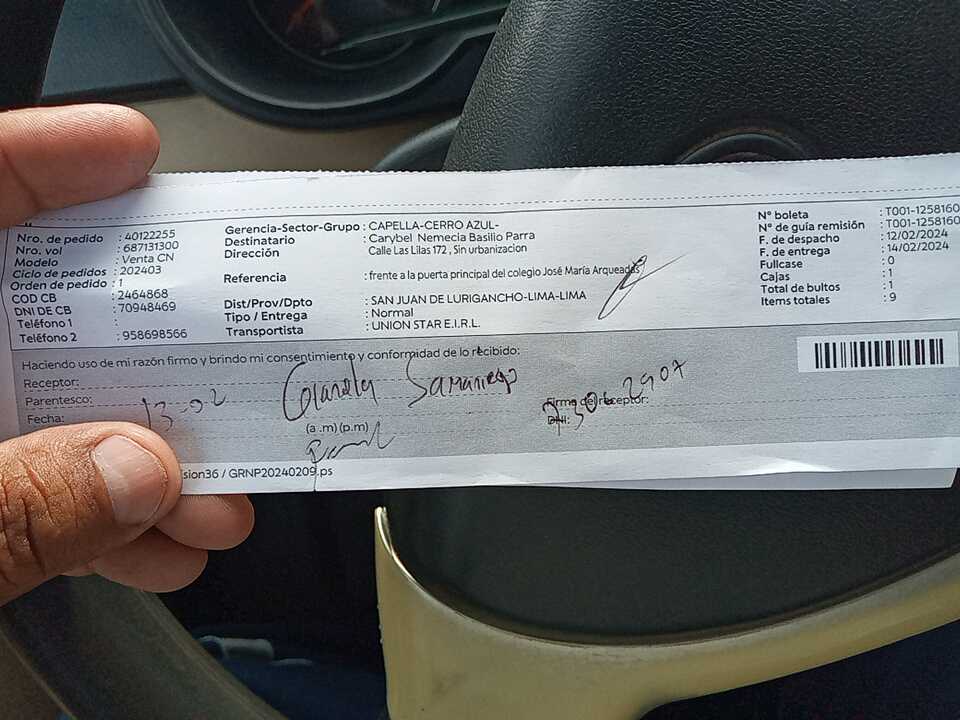 Nro. de pedido : 40122255
Nro. vol : 687131300
Modelo : Venta CN
Ciclo de pedidos : 202403
Orden de pedido : 1
COD CB : 2464868
DNI DE CB : 70948469
Teléfono 1 :
Teléfono 2 : 958698566
Gerencia-Sector-Grupo : CAPELLA-CERRO AZUL-
Destinatario : Carybel Nemecia Basilio Parra
Dirección Calle Las Lilas 172 , Sin urbanizacion
Referencia : frente a la puerta principal del colegio José María Arqueadas
Dist/Prov/Dpto : SAN JUAN DE LURIGANCHO-LIMA-LIMA
Tipo / Entrega : Normal
Transportista : UNION STAR E.I.R.L.
N° boleta : T001-1258160
N° de guía remisión : T001-1258160
F. de despacho : 12/02/2024
F. de entrega : 14/02/2024
Fullcase : 0
Cajas : 1
Total de bultos : 1
Items totales : 9
Haciendo uso de mi razón firmo y brindo mi consentimiento y conformidad de lo recibido:
Receptor:
Parentesco:
Firma del receptor:
Fecha: 13-02
(a .m) (p.m)
DNI:
sion36 / GRNP20240209.ps